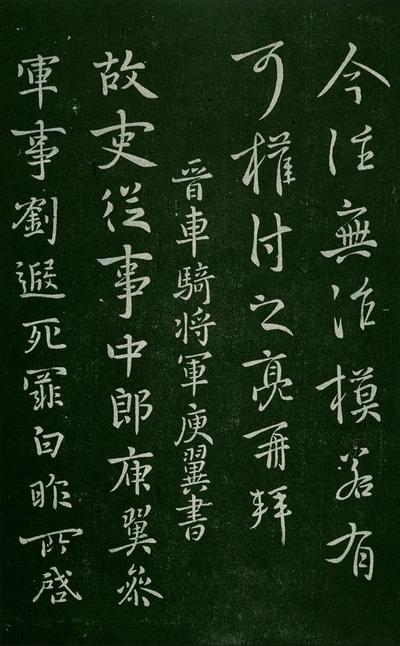 今往無治模若有
可權付之亮再拜
晉車騎将軍庾翼書
故吏從事中郎庾翼參
軍事劉遐死罪白昨所啓